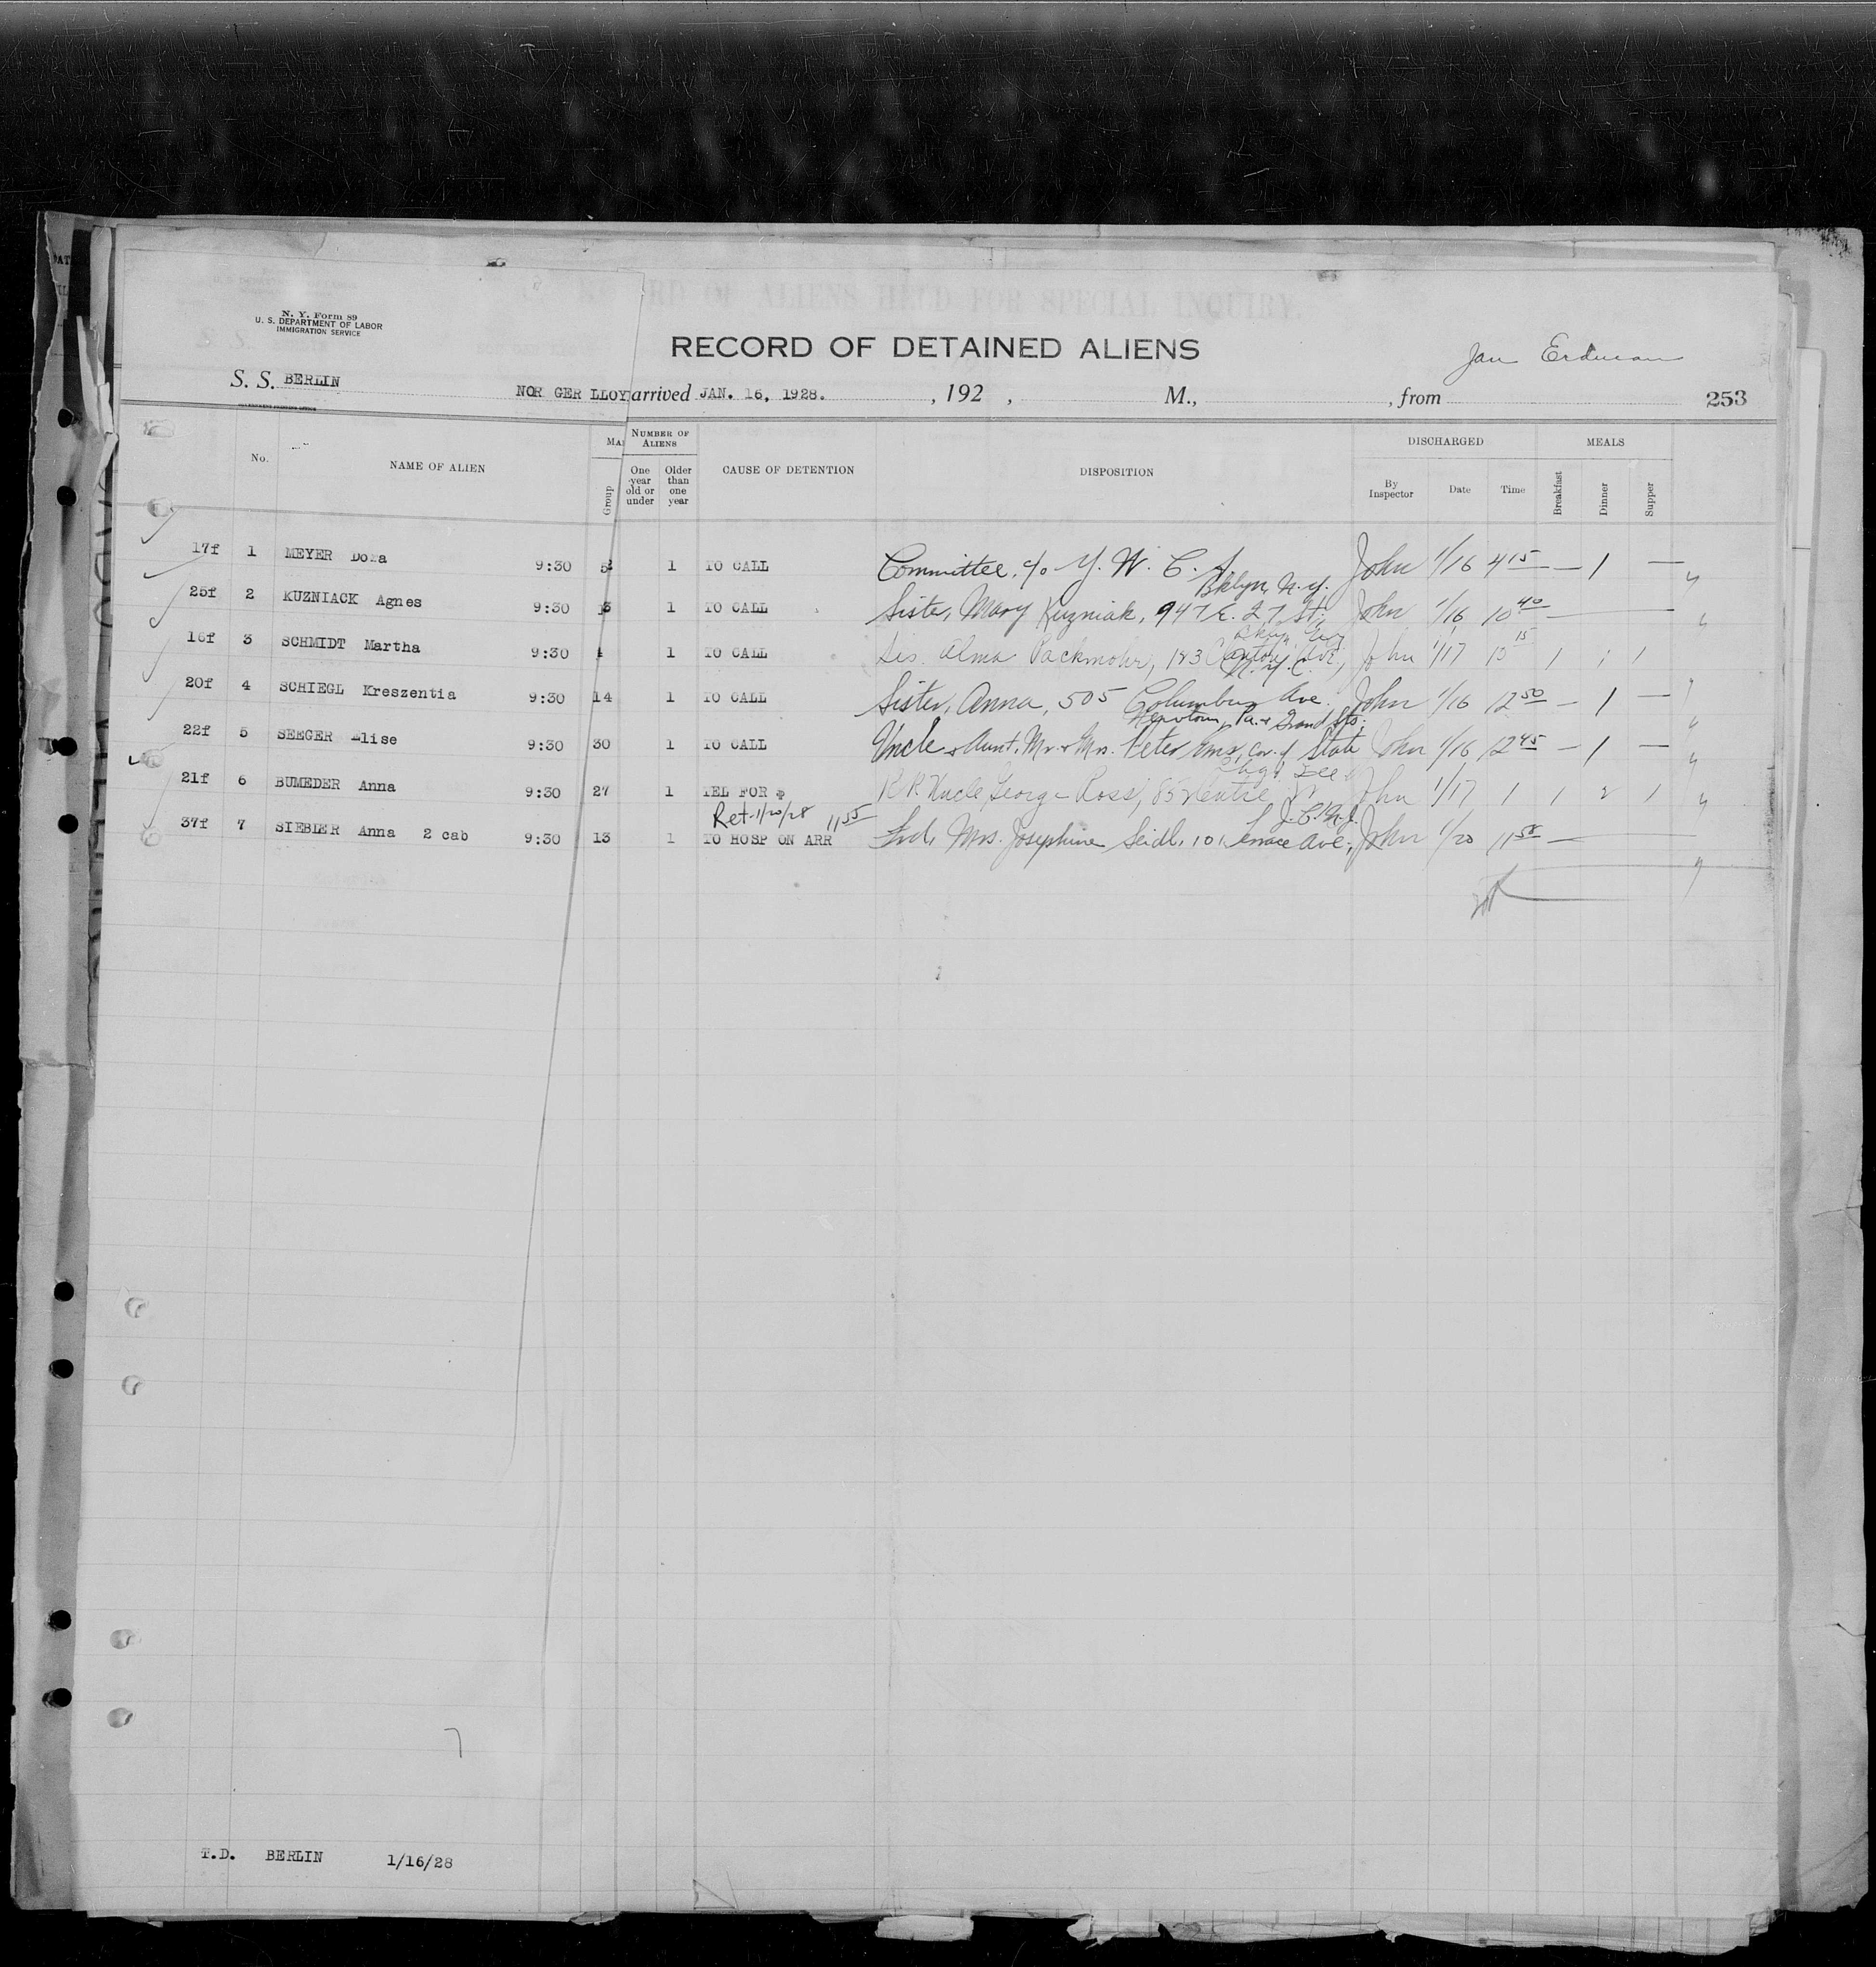 N. Y. Form 89
U. S. DEPARTMENT OF LABOR
IMMIGRATION SERVICE
RECORD OF ALIENS HELD FOR SPECIAL INQUIRY.
RECORD OF DETAINED ALIENS
Jan Erdman
S. S. BERLIN NOR GER LLOY arrived JAN. 16, 1928. , 192 , M., , from 253
No. NAME OF ALIEN Group NUMBER OF ALIENS One year old or under Older than one year CAUSE OF DETENTION DISPOSITION DISCHARGED By Inspector Date Time MEALS Breakfast Dinner Supper
17f 1 MEYER Dora 9:30 1 TO CALL Committee, c/o Y. W. C. A. John 1/16 4 15 — 1 —
Bklyn, N.Y.
25f 2 KUZNIACK Agnes 9:30 13 1 TO CALL Sister, Mary Kuzniak, 947 E. 27 St. John 1/16 10 40 —
16f 3 SCHMIDT Martha 9:30 1 TO CALL Sis. Alma Packmohr, 183 Ave, John 1/17 10 15 1 1 1
N.Y.C.
20f 4 SCHIEGL Kreszentia 9:30 14 1 TO CALL Sister, Anna, 505 Columbus Ave. John 1/16 12 50 — 1 —
Newtown, Pa. & Grand Sts.
22f 5 SEEGER Elise 9:30 30 1 TO CALL Uncle & Aunt, Mr. & Mrs. Peter cor. of State John 1/16 12 45 — 1 —
21f 6 BUMEDER Anna 9:30 27 1 TEL FOR $ RR Uncle, George Ross, John 1/17 1 1 2 1
Ret. 1/20/28 11 55 J.C. N.J.
37f 7 SIEBLER Anna 2 cab 9:30 13 1 TO HOSP ON ARR Frd, Mrs. Josephine Seidl, 101 Terrace Ave., John 1/20 11 58 —
7
T.D. BERLIN 1/16/28